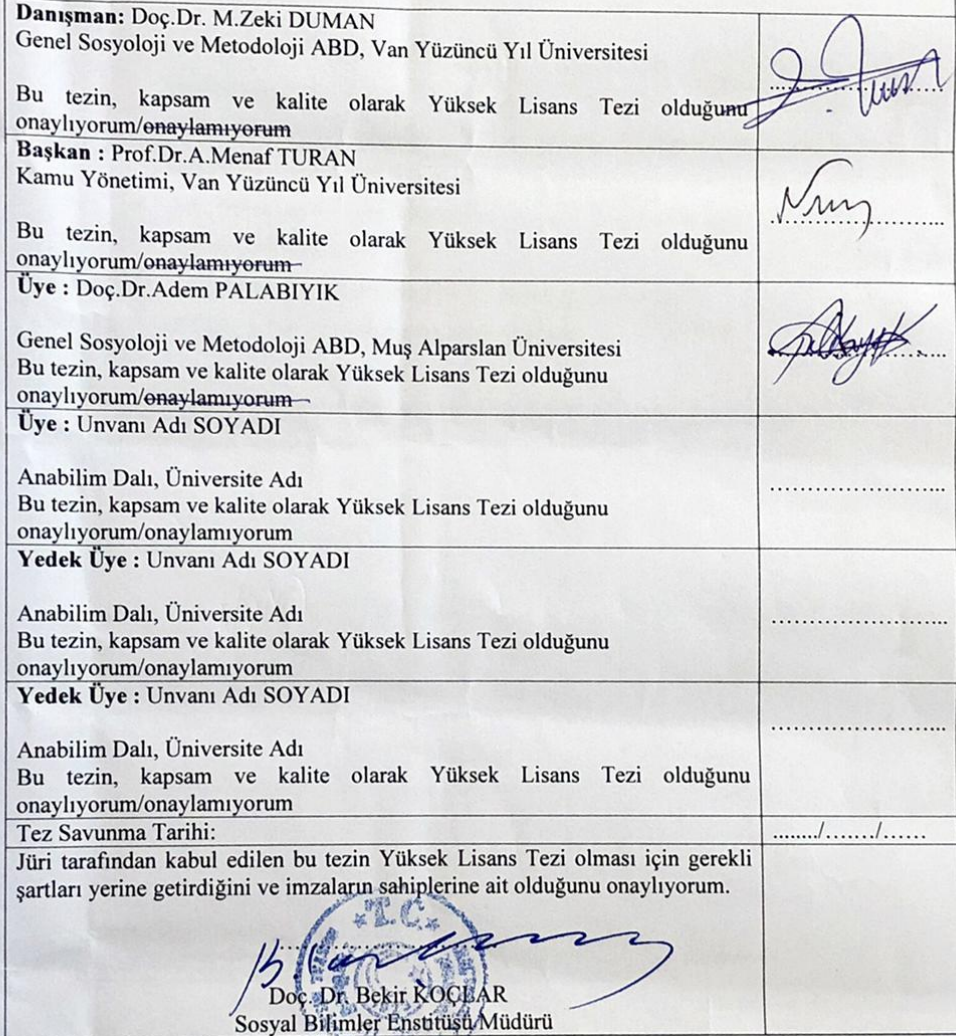 Danışman: Doç.Dr. M.Zeki DUMAN
Genel Sosyoloji ve Metodoloji ABD, Van Yüzüncü Yıl Üniversitesi
Bu tezin, kapsam ve kalite olarak Yüksek Lisans Tezi olduğunu
onaylıyorum/onaylamıyorum
Başkan : Prof.Dr.A.Menaf TURAN
Kamu Yönetimi, Van Yüzüncü Yıl Üniversitesi
Bu tezin, kapsam ve kalite olarak Yüksek Lisans Tezi olduğunu
onaylıyorum/onaylamıyorum
Üye : Doç.Dr.Adem PALABIYIK
Genel Sosyoloji ve Metodoloji ABD, Muş Alparslan Üniversitesi
Bu tezin, kapsam ve kalite olarak Yüksek Lisans Tezi olduğunu
onaylıyorum/onaylamıyorum
Üye : Unvanı Adı SOYADI
Anabilim Dalı, Üniversite Adı
Bu tezin, kapsam ve kalite olarak Yüksek Lisans Tezi olduğunu
onaylıyorum/onaylamıyorum
Yedek Üye : Unvanı Adı SOYADI
Anabilim Dalı, Üniversite Adı
Bu tezin, kapsam ve kalite olarak Yüksek Lisans Tezi olduğunu
onaylıyorum/onaylamıyorum
Yedek Üye : Unvanı Adı SOYADI
Anabilim Dalı, Üniversite Adı
Bu tezin, kapsam ve kalite olarak Yüksek Lisans Tezi olduğunu
onaylıyorum/onaylamıyorum
Tez Savunma Tarihi: ......../......./......
Jüri tarafından kabul edilen bu tezin Yüksek Lisans Tezi olması için gerekli
şartları yerine getirdiğini ve imzaların sahiplerine ait olduğunu onaylıyorum.
T.C.
Doç. Dr. Bekir KOÇLAR
Sosyal Bilimler Enstitüsü Müdürü